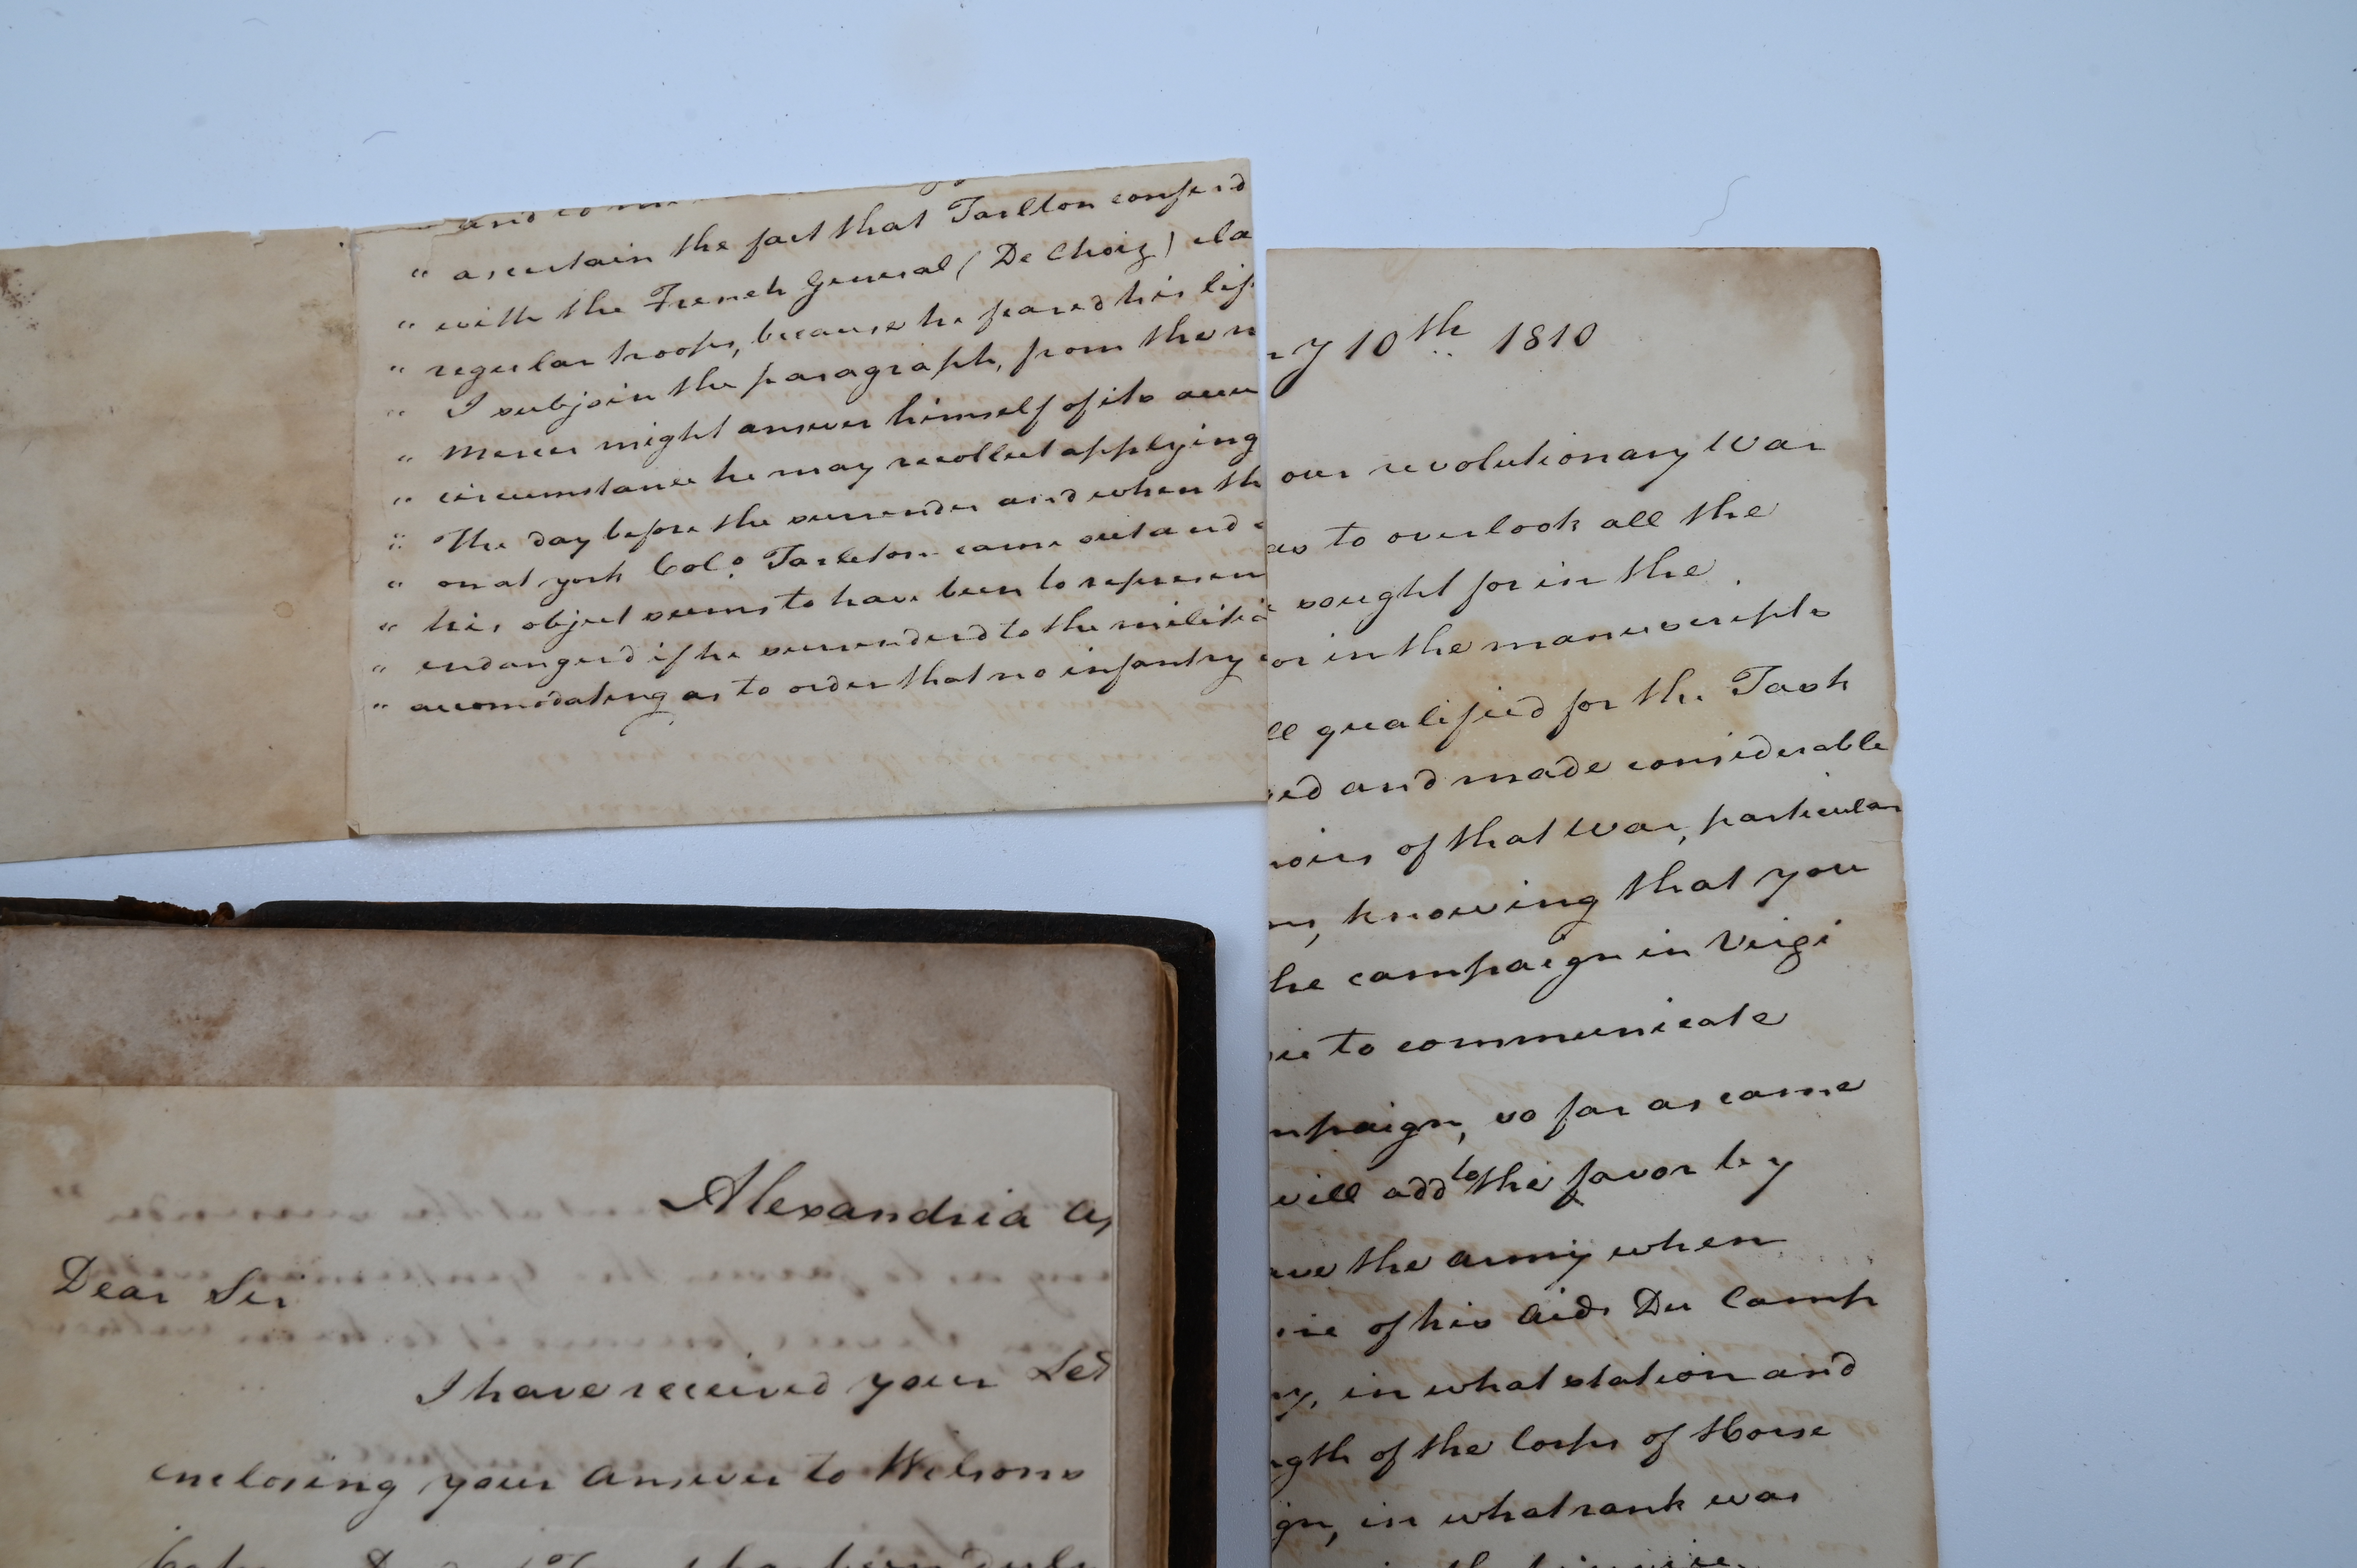 " ascertain the fact that Tarlton confer'd
" with the French General (De Choiz) cla
" regular troops, because he feared his lif
" I subjoin the paragraph, from the n
" Mercer might answer himself of its accu
" circumstance he may recollect applying
" The day before the surrender and when th
" on at york Col.o Tarleton came out and
" his object seems to have been to represen
" endangerd if he surrenderd to the militia
" accomodating as to order that no infantry
ry 10th 1810
our revolutionary War
as to overlook all the
sought for in the
or in the manuscripts
ll qualified for the Task
ed and made considerable
oirs of that War, particular
knowing that you
he campaign in Virgi
to communicate
mpaign, so far as came
will add to the favor by
ave the army when
of his Aids Du Camp
in what station and
ngth of the Corps of Horse
gn, in what rank was
Alexandria
Dear Sir
I have received your Let
enclosing your answer to Wilsons